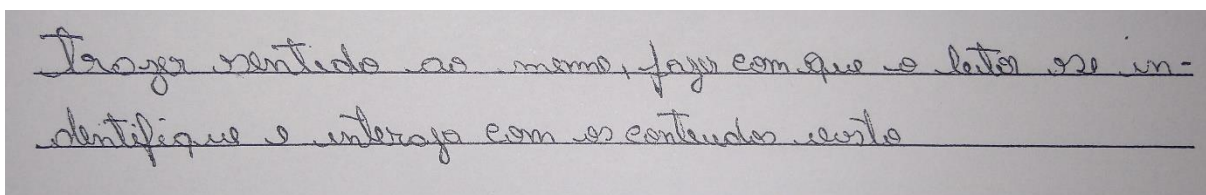 Trazer sentido ao mesmo, fazer com que o leitor se in-
dentifique e interaja com os conteudos visto